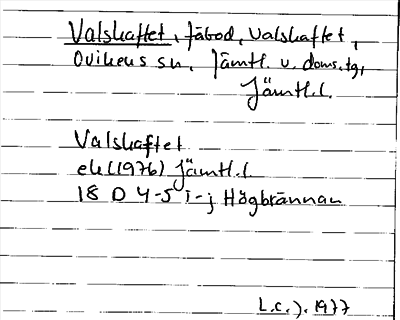 Valshaftet, fäbod, Valshaftet,
Ovikens sn, Jämtl. v. doms.tg,
Jämtl.l.
Valshaftet
ek (1976) Jämtl.l.
18 D 4-5 i-j Högbrännan
L.c.J. 1977